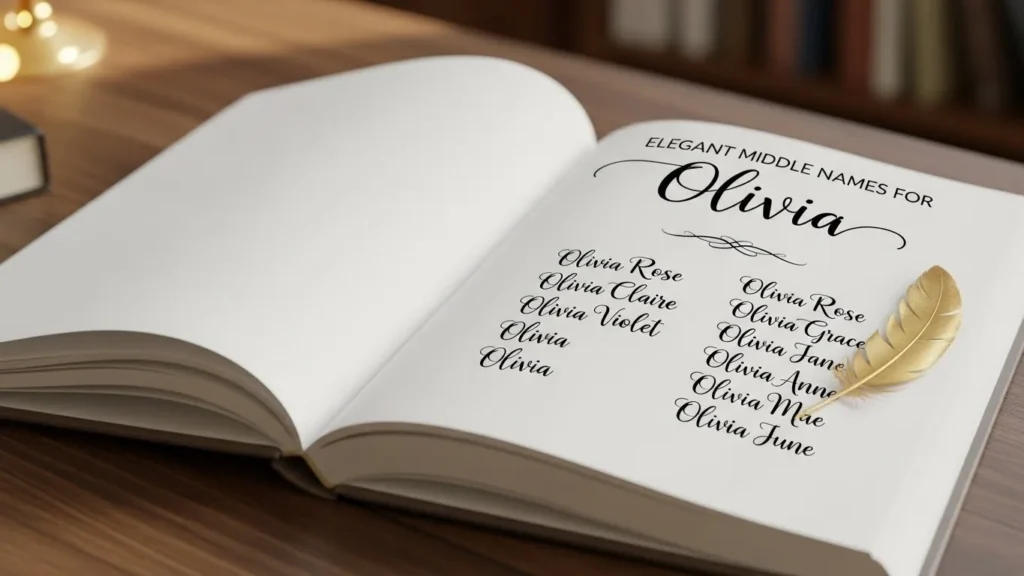 ELEGANT MIDDLE NAMES FOR
Olivia
Olivia Rose
Olivia Claire
Olivia Violet
Olivia
Olivia
Olivia Rose
Olivia Grace
Olivia Jane
Olivia Anne
Olivia Mae
Olivia June